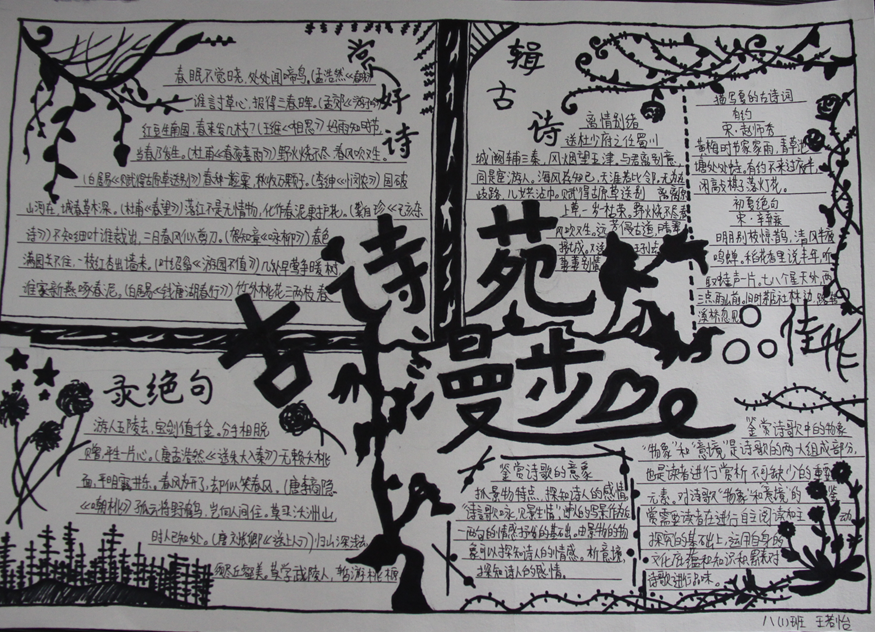 赏好诗
春眠不觉晓,处处闻啼鸟。(孟浩然《春晓》
谁言寸草心,报得三春晖。(孟郊《游子
红豆生南国,春来发几枝?(王维《相思》)好雨知时节,
当春乃发生。(杜甫《春夜喜雨》)野火烧不尽,春风吹又生。
(白居易《赋得古原草送别》)春种一粒粟,秋收万颗子。(李绅《悯农》)国破
山河在,城春草木深。(杜甫《春望》)落红不是无情物,化作春泥更护花。(龚自珍《己亥杂
诗》)不知细叶谁裁出,二月春风似剪刀。(贺知章《咏柳》)春色
满园关不住,一枝红杏出墙来。(叶绍翁《游园不值》)几处早莺争暖树,
谁家新燕啄春泥。(白居易《钱塘湖春行》)竹外桃花三两枝,春
辑古诗
离情别绪
送杜少府之任蜀川
城阙辅三秦,风烟望五津,与君离别意,
同是宦游人。海内存知己,天涯若比邻。无为在
歧路,儿女共沾巾。赋得古原草送别 离离原
上草,一岁一枯荣。野火烧不尽,春
风吹又生。远芳侵古道,晴翠
接荒城。又送王孙去,
萋萋别情
描写夏的古诗词
有约
宋·赵师秀
黄梅时节家家雨,青草池
塘处处蛙。有约不来过夜半
闲敲棋子落灯花。
初夏绝句
宋·辛弃疾
明月别枝惊鹊,清风半夜
鸣蝉。稻花香里说丰年,听
取蛙声一片。七八个星天外,两
三点雨山前。旧时茅店社林边,路转
溪桥忽见
佳作
古诗苑漫步
录绝句
游人五陵去,宝剑值千金。分手相脱
赠,平生一片心。(唐孟浩然《送朱大入秦》)无赖夭桃
面,平明露井东。春风为开了,却似笑春风。(唐李商隐
《嘲桃》)孤云将野鹤,岂向人间住。莫买沃洲山,
时人已知处。(唐刘长卿《送上人》)归山深浅去,
须尽丘壑美。莫学武陵人,暂游桃源
鉴赏诗歌的意象
抓景物特点,探知诗人的感情
诗言歌咏
探知诗人的感情。
鉴赏诗歌中的物象
“物象”和“意境”是诗歌的两大组成部分,
也是读者进行赏析不可缺少的重要
元素。对诗歌“物象”和“意境”的鉴
赏需要读者在进行自主阅读和主动
探究的基础上,运用自身的
文化底蕴和知识积累对
诗歌进行品味。
八(1)班 王若怡